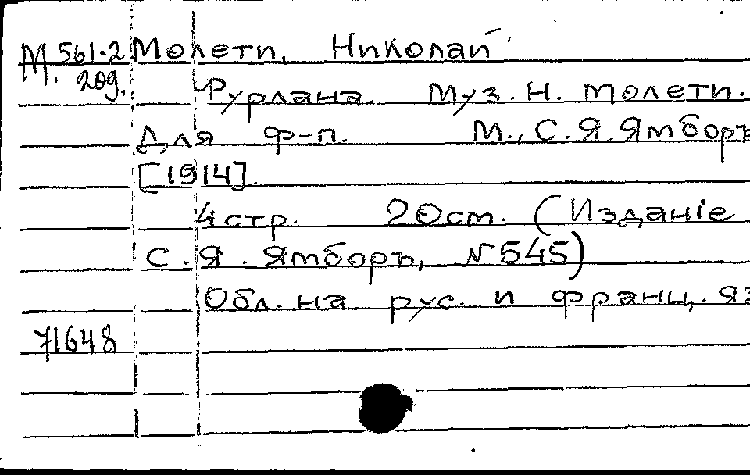 М. 561-2 Молети, Николай
20g. Рурлана. Муз. Н. Молети.
Для ф-п. М., С.Я. Ямборъ
[1914]
4 стр. 20 см. (Изданіе
С.Я. Ямборъ, N 545)
Обл. на рус. и франц. яз
71648